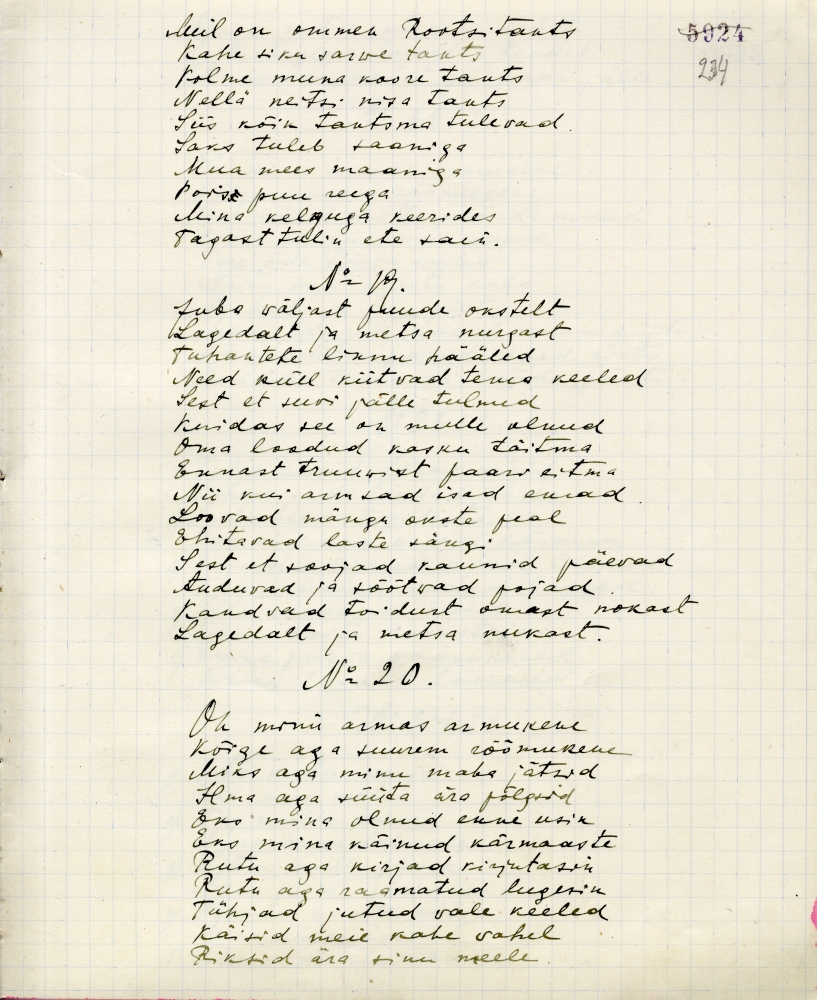 5924
234
Meil on ommen Rootsi tants
Kahe siku sarwe tants
Kolme muna koore tants
Nellä neitsi nisa tants
Siis kõik tantsma tulevad.
Saks tuleb saaniga
Mua mees maaniga
Poiss puu reega
Mina kelguga keerides
Tagast tulin ete sain.
No 19.
Juba wäljast puude okstelt
Lagedalt ja metsa nurgast
Tuhantete linnu hääled
Need küll kiitvad tema keeled
Sest et suvi jälle tulnud
Kuidas see on mulle olnud
Oma loodud kasku täitma
Ennast truuwist paari eitma
Nii kui armsad isad emad
Loovad mängu okste peal
Ehitavad laste sängi
Sest et soojad kaunid päevad
Auduvad ja söötwad pojad.
Kandvad toidust omast nokast
Lagedalt ja metsa nukast.
No 20.
Oh minu armas armukene
Kõige aga suurem rõõmukene
Miks aga minu maha jätsid
Ilma aga süüta ära põlgsid
Eks mina olnud enne usin
Eks mina käinud kärmaaste
Rutu aga kirjad kirjutasin
Rutu aga raamatud lugesin
Tühjad jutud vale keeled
Käisid meie kahe vahel
Riksid ära sinu meele.